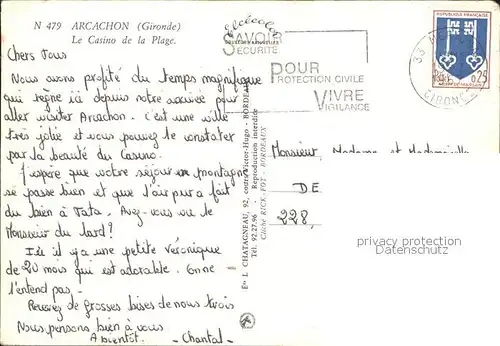 N 479 ARCACHON (Gironde)
Le Casino de la Plage.
SAVOIR
SÉCURITÉ
POUR
PROTECTION CIVILE
VIVRE
VIGILANCE
REPUBLIQUE FRANÇAISE
0,25
33
GIRONDE
Chers Tous
Nous avons profité du temps magnifique
qui règne ici depuis notre arrivée pour
aller visiter Arcachon. C'est une ville
très jolie et vous pouvez le constater
par la beauté du Casino.
J'espère que votre séjour en montagne
se passe bien et que l'air pur a fait
du bien à Tata. Avez-vous vu le
Monsieur du lard?
Ici il y a une petite Véronique
de 20 mois qui est adorable. On ne
l'entend pas.
Recevez de grosses bises de nous trois
Nous pensons bien à vous
A bientôt. - Chantal -
Éts L. CHATAGNEAU, 92, cours Victor-Hugo - BORDEAUX
Tél. 92.27.96 - Reproduction interdite
Cliché RICK-FOT - BORDEAUX
Monsieur, Madame et Mademoiselle
DE
228,
privacy protection
Datenschutz